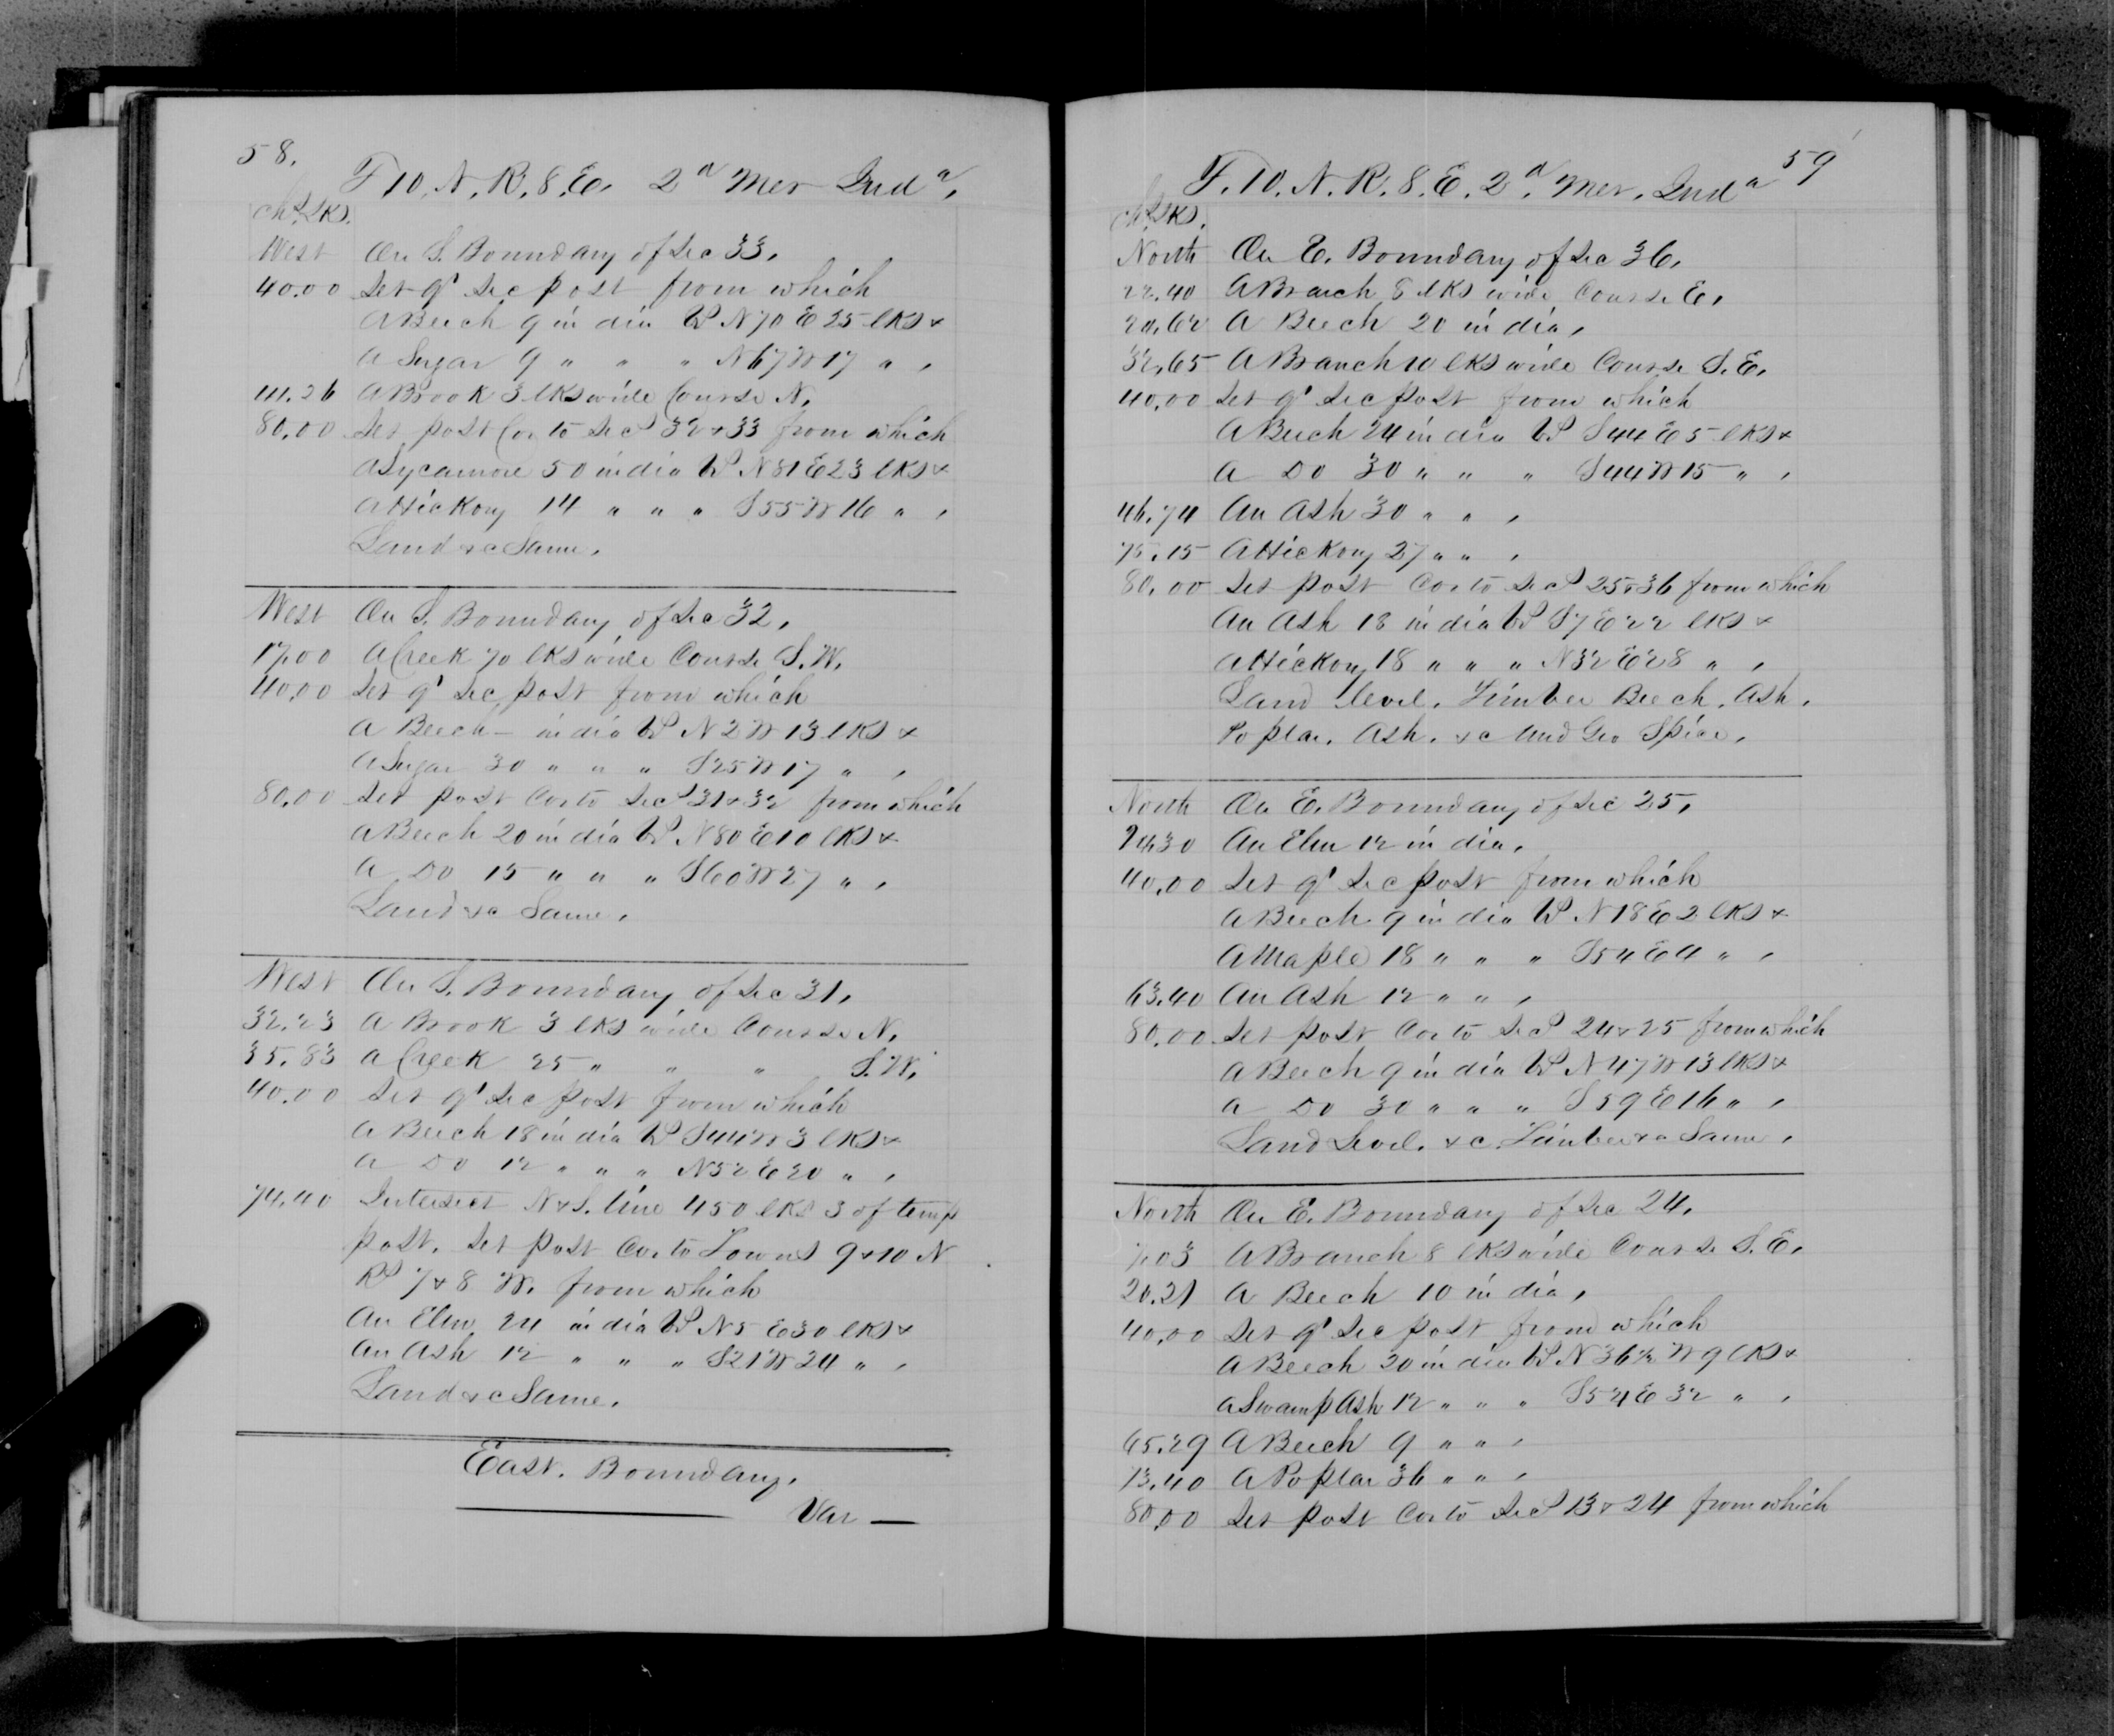 58.
T 10. N. R. 8. E. 2d Mer Inda,
chs. lks.
West On S. Boundary of Sec 33,
40.00 Set qr Sec post from which
A Beech 9 in dia Bs N 70 E 25 lks &
A Sugar 9 " " " N 67 W 17 " ,
41.26 A Brook 3 lks wide Course N,
80.00 Set post Cor to Secs 32 & 33 from which
A Sycamore 50 in dia Bs N 81 E 23 lks &
A Hickory 14 " " " S 55 W 16 " ,
Land &c Same,
West On S. Boundary of Sec 32,
17.00 A Creek 70 lks wide Course S. W,
40.00 Set qr Sec post from which
A Beech — in dia Bs N 2 W 13 lks &
A Sugar 30 " " " S 25 W 17 " ,
80.00 Set post Cor to Secs 31 & 32 from which
A Beech 20 in dia Bs N 80 E 10 lks &
A Do 15 " " " S 60 W 27 " ,
Land &c Same,
West On S. Boundary of Sec 31,
32.23 A Brook 3 lks wide Course N,
35.83 A Creek 25 " " " S. W,
40.00 Set qr Sec post from which
A Beech 18 in dia Bs S 44 W 3 lks &
A Do 12 " " " N 52 E 20 " ,
74.40 Intersect N & S. line 450 lks S of temp
post. Set post Cor to Towns 9 & 10 N
Rs 7 & 8 W. from which
An Elm 24 in dia Bs N 5 E 30 lks &
An Ash 12 " " " S 21 W 24 " ,
Land &c Same,
East. Boundary,
Var —
59
T. 10. N. R. 8. E. 2d. Mer. Inda
chs. lks.
North On E. Boundary of Sec 36,
22.40 A Branch 8 lks wide Course E,
A Beech 20 in dia,
32.65 A Branch 10 lks wide Course S. E,
40.00 Set qr Sec post from which
A Beech 24 in dia Bs S 44 E 5 lks &
A Do 30 " " " S 44 W 15 " ,
46.74 An Ash 30 " " ,
75.15 A Hickory 27 " " ,
80.00 Set post Cor to Secs 25 & 36 from which
An Ash 18 in dia Bs S 7 E 22 lks &
A Hickory 18 " " " N 32 E 28 " ,
Land level. Timber Beech. Ash.
Poplar. Ash. &c Und Gro Spice,
North On E. Boundary of Sec 25,
An Elm 12 in dia,
40.00 Set qr Sec post from which
A Beech 9 in dia Bs N 18 E 2 lks &
A Maple 18 " " " S 54 E 4 " ,
63.40 An Ash 12 " " ,
80.00 Set post Cor to Secs 24 & 25 from which
A Beech 9 in dia Bs N 47 W 13 lks &
A Do 30 " " " S 59 E 16 " ,
Land Level. &c Timber &c Same,
North On E. Boundary of Sec 24,
7.03 A Branch 8 lks wide Course S. E,
20.21 A Beech 10 in dia,
40.00 Set qr Sec post from which
A Beech 20 in dia Bs N 36½ W 9 lks &
A Swamp Ash 12 " " " S 54 E 32 " ,
65.29 A Beech 9 " " ,
73.40 A Poplar 36 " " ,
80.00 Set post Cor to Secs 13 & 24 from which